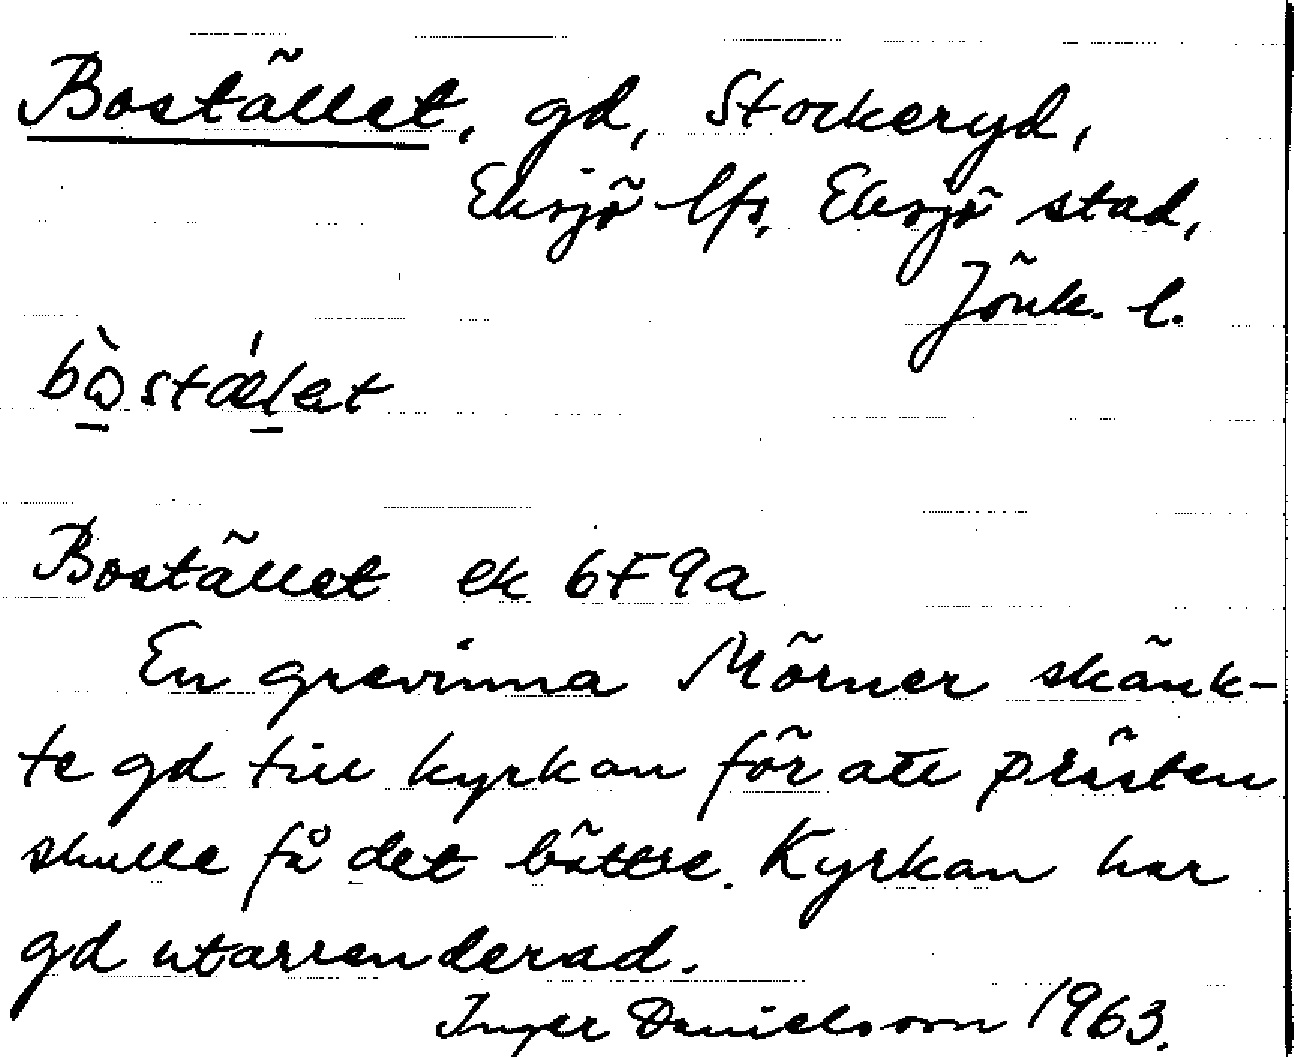 Bostället, gd, Stockeryd,
Eksjö lfs, Eksjö stad,
Jönk. l.
Bostället ek 6F9a
En grevinna Mörner skänk-
te gd till kyrkan för att prästen
skulle få det bättre. Kyrkan har
gd utarrenderad.
Inger Danielsson 1963.